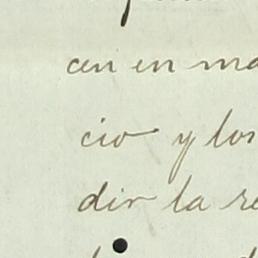 cen en ma
cio y los
dir la re